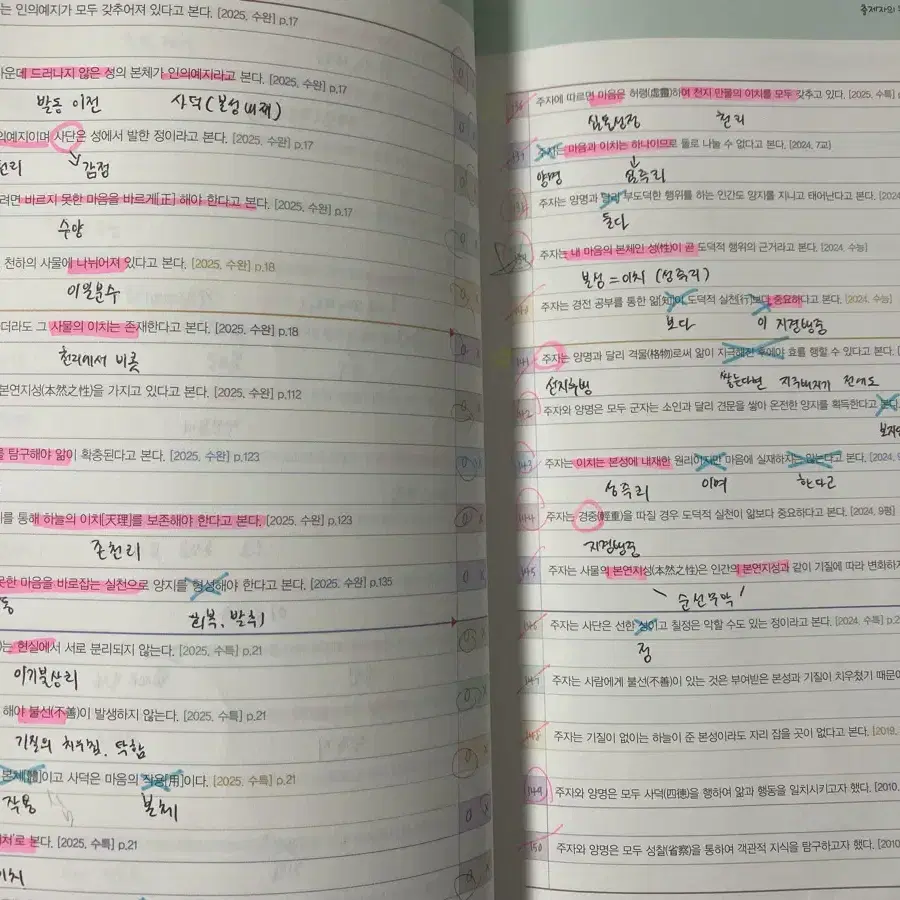 는 인의예지가 모두 갖추어져 있다고 본다. [2025, 수완] p.17
가운데 드러나지 않은 성의 본체가 인의예지라고 본다. [2025, 수완] p.17
발동 이전 사덕(본성 내재)
인의예지이며 사단은 성에서 발한 정이라고 본다. [2025, 수완] p.17
천리 감정
려면 바르지 못한 마음을 바르게[正] 해야 한다고 본다. [2025, 수완] p.17
수양
천하의 사물에 나뉘어져 있다고 본다. [2025, 수완] p.18
이일분수
더라도 그 사물의 이치는 존재한다고 본다. [2025, 수완] p.18
천리에서 비롯
본연지성(本然之性)을 가지고 있다고 본다. [2025, 수완] p.112
를 탐구해야 앎이 확충된다고 본다. [2025, 수완] p.123
를 통해 하늘의 이치[天理]를 보존해야 한다고 본다. [2025, 수완] p.123
존천리
못한 마음을 바로잡는 실천으로 양지를 형성해야 한다고 본다. [2025, 수완] p.135
동 회복, 발휘
)는 현실에서 서로 분리되지 않는다. [2025, 수특] p.21
이기불상리
해야 불선(不善)이 발생하지 않는다. [2025, 수특] p.21
기질의 치우침, 탁함
본체[體]이고 사덕은 마음의 작용[用]이다. [2025, 수특] p.21
작용 본체
처'로 본다. [2025, 수특] p.21
이치
출제자의
136 주자에 따르면 마음은 허령(虛靈)하여 천지 만물의 이치를 모두 갖추고 있다. [2025, 수특] p
심통성정 천리
137 주자는 마음과 이치는 하나이므로 둘로 나눌 수 없다고 본다. [2024, 7교]
양명 심즉리
138 주자는 양명과 달리 부도덕한 행위를 하는 인간도 양지를 지니고 태어난다고 본다. [2024
둘다
139 주자는 내 마음의 본체인 성(性)이 곧 도덕적 행위의 근거라고 본다. [2024, 수능]
본성=이치 (성즉리)
140 주자는 경전 공부를 통한 앎[知]이 도덕적 실천[行]보다 중요하다고 본다. [2024, 수능]
보다 이 지경행중
141 주자는 양명과 달리 격물(格物)로써 앎이 지극해진 후에야 효를 행할 수 있다고 본다. [
선지후행 쌓는다면 지극해지기 전에도
142 주자와 양명은 모두 군자는 소인과 달리 견문을 쌓아 온전한 양지를 획득한다고 본다.
143 주자는 이치는 본성에 내재한 원리이지만 마음에 실재하지는 않는다고 본다. [2024,
성즉리 이며 한다고
144 주자는 경중(輕重)을 따질 경우 도덕적 실천이 앎보다 중요하다고 본다. [2024, 9평]
지경행중
145 주자는 사물의 본연지성(本然之性)은 인간의 본연지성과 같이 기질에 따라 변화하지
순선무악
146 주자는 사단은 선한 성이고 칠정은 악할 수도 있는 정이라고 본다. [2024, 수특] p.2
정
147 주자는 사람에게 불선(不善)이 있는 것은 부여받은 본성과 기질이 치우쳤기 때문이
148 주자는 기질이 없이는 하늘이 준 본성이라도 자리 잡을 곳이 없다고 본다. [2019,
149 주자와 양명은 모두 사덕(四德)을 행하여 앎과 행동을 일치시키고자 했다. [2010,
150 주자와 양명은 모두 성찰(省察)을 통하여 객관적 지식을 탐구하고자 했다. [2010